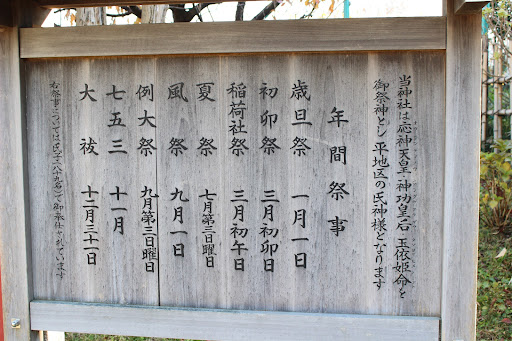 当神社は応神天皇・神功皇后・玉依姫命を
御祭神とし平地区の氏神様となります
年間祭事
歳旦祭 一月一日
初卯祭 三月初卯日
稲荷社祭 三月初午日
夏祭 七月第三日曜日
風祭 九月一日
例大祭 九月第三日曜日
七五三 十一月
大祓 十二月三十一日
右祭事については氏子八十九名にて御奉仕されています